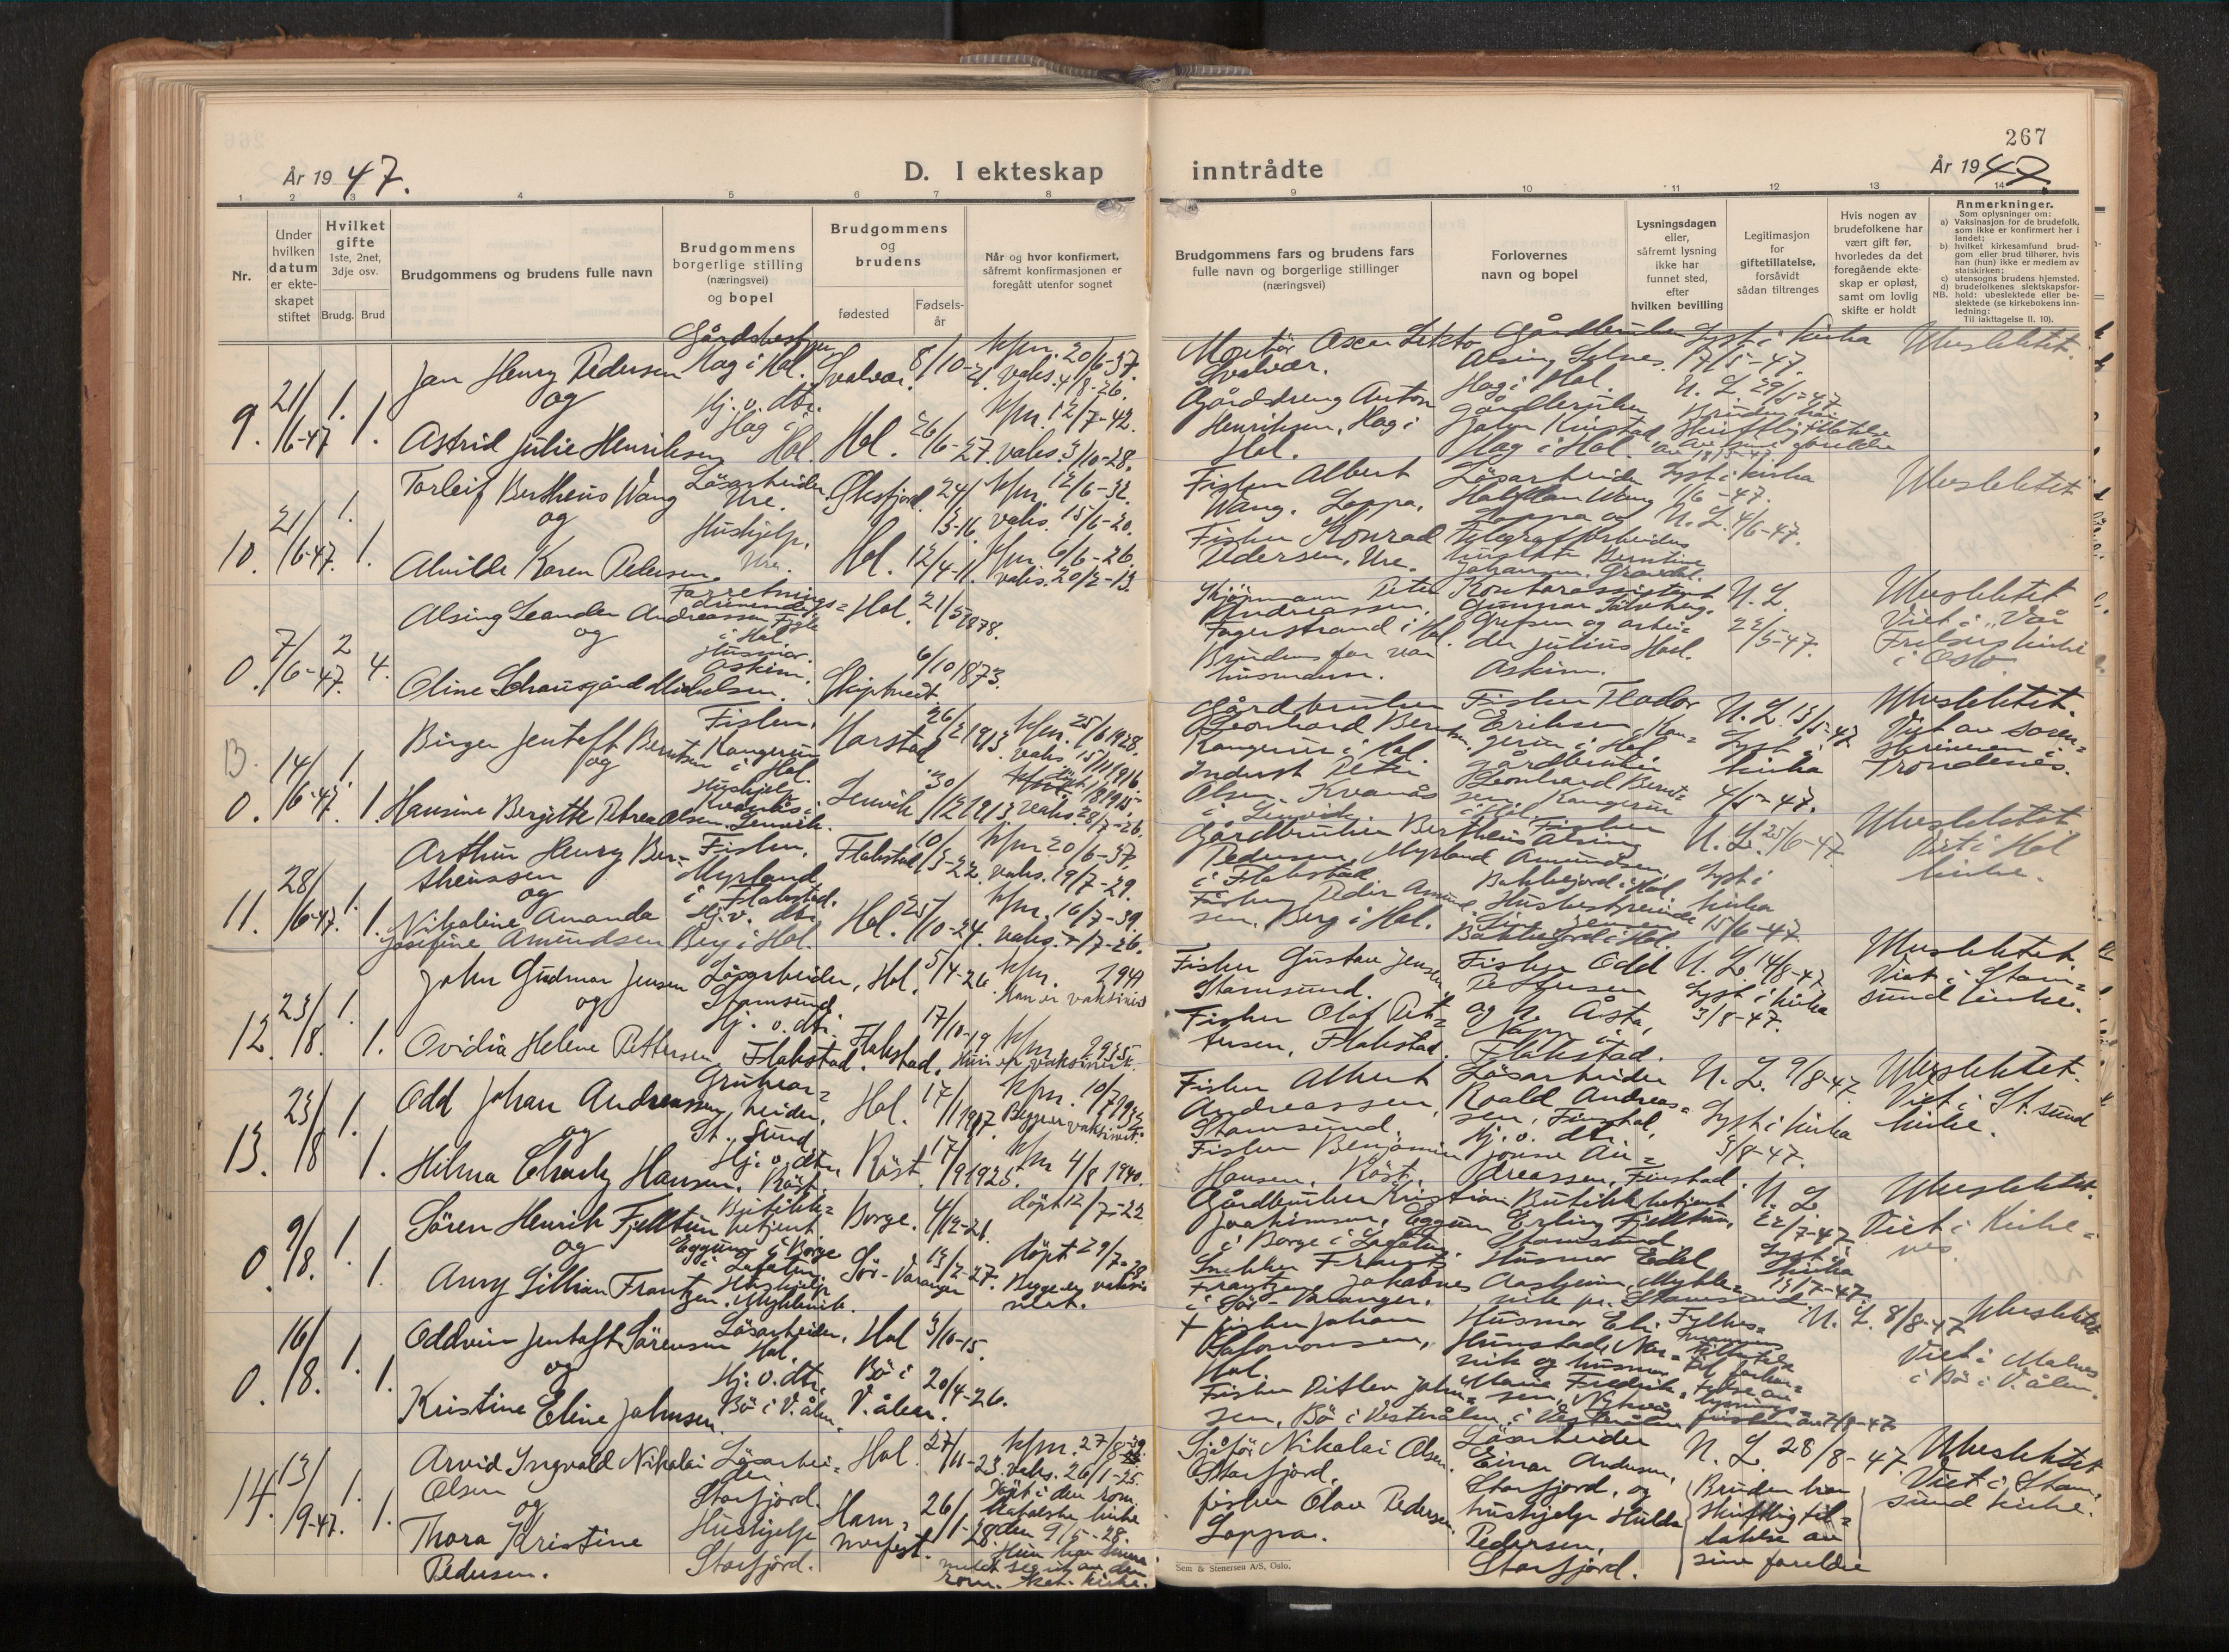 267
År 1947.
D. I ekteskap
inntrådte
År 1947.
1 2 3 4 5 6 7 8 9 10 11 12 13 14
Nr.
Under hvilken datum er ekteskapet stiftet
Hvilket gifte
1ste, 2net, 3dje osv.
Brudg. Brud
Brudgommens og brudens fulle navn
Brudgommens borgerlige stilling (næringsvei) og bopel
Brudgommens og brudens
fødested
Fødselsår
Når og hvor konfirmert, såfremt konfirmasjonen er foregått utenfor sognet
Brudgommens fars og brudens fars fulle navn og borgerlige stillinger (næringsvei)
Forlovernes navn og bopel
Lysningsdagen eller, såfremt lysning ikke har funnet sted, efter hvilken bevilling
Legitimasjon for giftetillatelse, forsåvidt sådan tiltrenges
Hvis nogen av brudefolkene har vært gift før, hvorledes da det foregående ekteskap er opløst, samt om lovlig skifte er holdt
Anmerkninger.
Som oplysninger om:
a) Vaksinasjon for de brudefolk, som ikke er konfirmert her i landet;
b) hvilket kirkesamfund brudgom eller brud tilhører, hvis han (hun) ikke er medlem av statskirken;
c) utensogns brudens hjemsted.
d) brudefolkenes slektskapsforhold: ubeslektede eller beslektede (se kirkebokens innledning:
NB. Til iakttagelse II. 10).
9. 21/6-47 1. 1.
Jan Henry Pedersen
og
Astrid Julie Henriksen
Hag i Hol.
Hj. v. dtr.
Hag i Hol.
Svolvær. 8/10-21.
Hol. 26/6-27.
kfm. 20/6-37.
vaks. 4/8-26.
kfm. 12/7-42.
vaks. 3/10-28.
Montør
Svolvær.
Gårdsdreng Anton
Henriksen, Hag i
Hol.
Gårdbruker
Alsing
Hag i Hol.
Gårdbruker
Hag i Hol.
Lyst i kirka
17/5-47.
U. L. 29/5-47
Bruden har
skriftlig tillatelse
av sine foreldre
Ubeslektet.
10. 21/6-47. 1. 1.
Torleif Bertheus Wang
og
Alvilde Karen Pedersen.
Løsarbeider
Ure.
Hushjelp.
Ure.
Øksfjord. 24/13-16.
Hol. 12/4-11.
kfm. 12/6-32.
vaks. 15/6-20.
kfm. 6/6-26
vaks. 20/2-13.
Fisker Albert
Wang. Loppa.
Fisker Konrad
Pedersen, Ure.
Løsarbeider
Wang
Loppa og
Telegrafarbeiders
hustru Berntine
Johansen. Gravdal.
Lyst i kirka
1/6-47.
U. L. 4/6-47.
Ubeslektet
0. 7/6-47. 2 4.
Alsing Leander Andreassen
og
Oline Michelsen.
Forretnings=
drivende
i Hol
Husmor.
Askim.
Hol. 21/5 1878.
Skiptvedt 6/10 1873.
Peter
Andreassen,
Fagerstrand i Hol.
Brudens far var
husmann.
Kontorassistent
Gunnar
Grefsen og arbei=
der Julius
Askim.
U. L.
22/5-47.
Ubeslektet
Viet i "Vår
Frelsers kirke
i Oslo
B. 0. 14/6-47. 1. 1.
Birger Jentoft Berntsen
og
Hansine Bergitte Petrea Olsen.
Fisker.
Kangerur
i Hol.
Hushjelp
Kvanås i
Lenvik.
Harstad 26/2 1913
Lenvik 30/12 1913
kfm. 25/6 1928.
vaks. 15/11 1916.
vaks. 28/7-26.
Gårdbruker
Leonhard Bernt=
sen. Kangerur i Hol
Peder
Olsen. Kvanås
i Lenvik.
Fisker Teodor
Eriksen, Kan=
gerur i Hol
Gårdbruker
Leonhard Bernt=
sen Kangerur
i Hol.
U. L. 13/5-47
Lyst i
kirka
4/5-47.
Ubeslektet.
Viet av soren=
skriveren i
Trondenes.
11. 28/6-47. 1. 1.
Arthur Henry Ber=
theussen
og
Nikoline Amanda
Josefine Amundsen
Fisker.
Myrland
i Flakstad.
Hj. v. dtr.
Berg i Hol.
Flakstad 10/5-22.
Hol. 25/10-24.
kfm. 20/6-37
vaks. 19/7-29.
kfm. 16/7-39.
Gårdbruker Bertheus
Pedersen, Myrland
i Flakstad.
Fisker Peder Amund=
sen, Berg i Hol.
Fisker
Alsing
Amundsen
Bakkejord i Hol
Husbestyrerinde
Jensen
Bakkejord i Hol.
U. L. 25/6-47
Lyst i
kirka
15/6-47.
Ubeslektet
Viet i Hol
kirke.
12. 23/8. 1. 1.
John Gudmar Jensen
og
Ovidia Helene Pettersen
Løsarbeider,
Stamsund
Hj. v. dtr.
Flakstad.
Hol. 5/4-26.
Flakstad. 17/10-19
kfm. 1941
Han er vaksinert
kfm. 1935.
Hun er vaksinert.
Fisker Gustav Jensen
Stamsund.
Fisker Olaf Pet=
tersen, Flakstad.
Fisker Odd
Pettersen
og Åsta,
Napp i
Flakstad.
U. L. 14/8-47
Lyst i kirka
3/8-47.
Ubeslektet
Viet i Stam=
sund kirke.
13. 23/8 1. 1.
Odd Johan Andreassen
og
Hilma Charly Hansen.
Gruvear=
beider,
St. sund
Hj. v. dtr.
Røst.
Hol. 17/1 1917.
Røst. 17/9 1925.
kfm. 10/7 1932
Begge er vaksinert.
kfm 4/8 1940.
Fisker Albert
Andreassen,
Stamsund.
Fisker Benjamin
Hansen, Røst.
Løsarbeider
Roald Andreas=
sen, Finstad,
Hj. v. dtr.
An=
dreassen, Finstad.
U. L. 9/8-47.
Lyst i kirka
3/8-47.
Ubeslektet.
Viet i St. sund
kirke.
0. 9/8. 1. 1.
Søren Henrik Fjelltun
og
Anny Lillian Frantzen.
Butikk=
betjent
Eggum i Borge
i Lofoten
Hushjelp
Myklevik.
Borge. 4/12-21.
Sør-Varanger 13/2-27.
døpt 12/7-22
døpt 29/7-28
Begge er vaksinert.
Gårdbruker Kristian
Joakimsen, Eggum
i Borge i Lofoten.
Snekker Frantz
Frantzen Jakobnes
i Sør-Varanger.
Butikkbetjent
Erling Fjelltun,
Stamsund
Husmor Edel
Aasheim, Mykle=
vik pr. Stamsund
U. L.
22/7-47
Lyst i
kirka
13/7-47.
Ubeslektet.
Viet i Kirke=
nes
0. 16/8. 1. 1.
Oddvin Jentoft Sørensen
og
Kristine Eline Johnsen.
Løsarbeider,
Hol.
Hj. v. dtr.
Bø i V.ålen.
Hol 3/10-15.
Bø i V.ålen. 20/4-26.
+ fisker Johan
Salomonsen,
Hol.
Fisker Ditlev John=
sen, Bø i Vesterålen
Husmor
Nar=
vik og husmor
Fredrik=
sen, Nykvåg
i Vesterålen
U. L. 8/8-47
Fylkes=
mannens
tillatelse
til forkor=
telse av
lysnings=
fristen av 7/8-47
Ubeslektet
Viet i Malnes
i Bø i V.ålen.
14. 13/9-47. 1. 1.
Arvid Ingvald Nikolai
Olsen
og
Thora Kristine
Pedersen.
Løsarbei=
der
Storfjord.
Hushjelp
Storfjord.
Hol. 27/11-23.
Ham=
merfest. 26/1-28.
kfm. 27/8-39.
vaks. 26/1-25.
Døpt i den rom.
katolske kirke
den 9/5-28.
Hun har senere
meldt seg ut av den
rom. kat. kirke.
Sjåfør Nikolai Olsen.
Storfjord.
fisker Olav Pedersen
Loppa.
Løsarbeider
Einar Andersen,
Storfjord, og
hushjelp Hulda
Pedersen,
Storfjord.
U. L. 28/8-47
Bruden har
skriftlig til=
latelse av
sine foreldre
Ubeslektet
Viet i Stam=
sund kirke.
Sem & Stenersen A/S, Oslo.